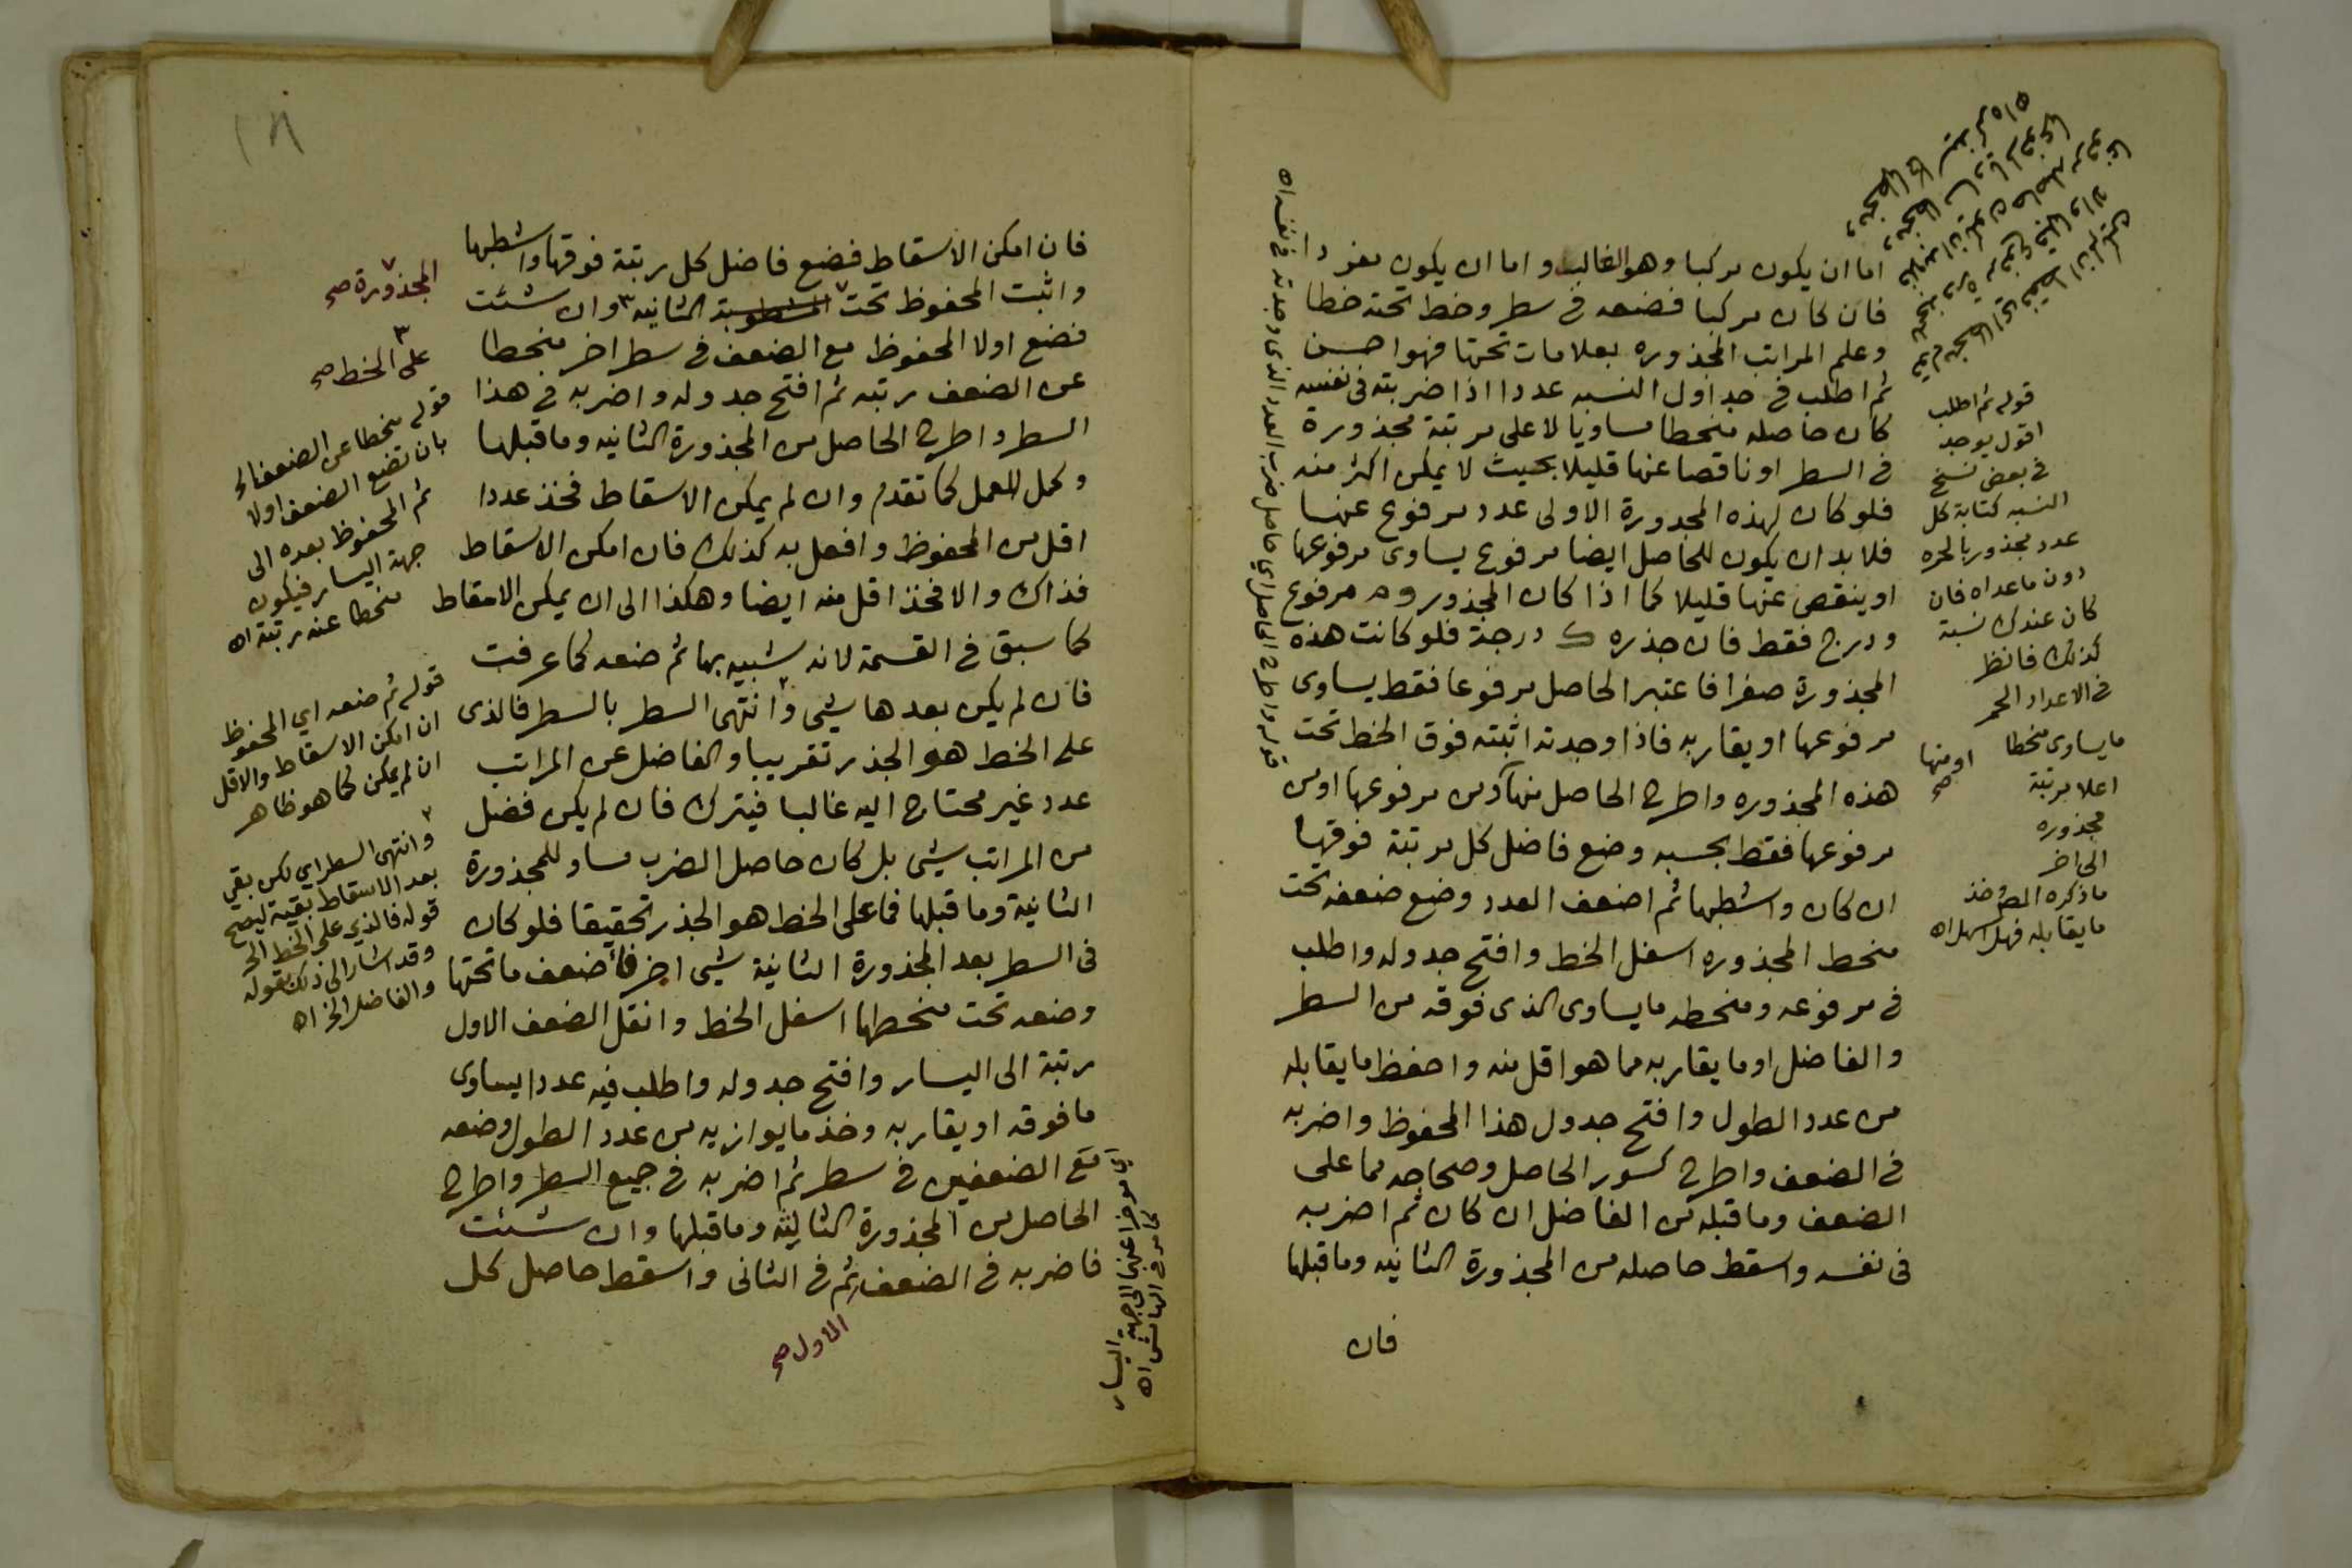 اما ان يكون مركبا وهو الغالب واما ان يكون مفردا
فان كان مركبا فضعه في سطر وخط تحته خطا
وعلم المراتب المجذوره بعلامات تحتها فهو احسن
ثم اطلب في جداول النسبه عددا اذا ضربته في نفسه
كان حاصله منحطا مساويا لاعلى مرتبة مجذورة
في السطر او ناقصا عنها قليلا بحيث لا يمكن اكثر منه
فلو كان لهذه المجدورة الاولى عدد مرفوع عنها
فلا بد ان يكون للحاصل ايضا مرفوع يساوى مرفوعها
او ينقص عنها قليلا كما اذا كان المجذور و م مرفوع
ودرج فقط فان جذره ك درجة فلو كانت هذه
المجذورة صفرا فاعتبر الحاصل مرفوعا فقط يساوى
مرفوعها او يقاربه فاذا وجدته اثبته فوق الخط تحت
هذه المجذوره واطرح الحاصل منها ومن مرفوعها او من
مرفوعها فقط بحسبه وضع فاضل كل مرتبة فوقها
ان كان واشطبها ثم اضعف العدد وضع ضعفه تحت
منحط المجذوره اسفل الخط وافتح جدوله واطلب
في مرفوعه ومنحطه ما يساوى الذى فوقه من السطر
والفاضل او ما يقاربه مما هو اقل منه واحفظ ما يقابله
من عدد الطول وافتح جدول هذا المحفوظ واضربه
في الضعف واطرح كسور الحاصل وصحاحه مما على
الضعف وما قبله من الفاضل ان كان ثم اضربه
في نفسه واسقط حاصله من المجذورة الثانيه وما قبلها
فان
قوله ثم اطلب
اقول يوجد
في بعض نسخ
النسبه كتابة كل
عدد مجذور بالحمره
دون ما عداه فان
كان عندك نسبة
كذلك فانظر
في الاعداد الحمر
ما يساوى منحطا
او منها صح
اعلا مرتبة
مجذوره
الى اخر
ما ذكره المص وخذ
ما يقابله فهو اسهل اه
قوله واطرح الحاصل اي حاصل ضرب العدد الذى وجدته في نفسه اه
١٨
فان امكن الاسقاط فضع فاضل كل رتبة فوقها واشطبها
واثبت المحفوظ تحت الثانيه وان شئت
فضع اولا المحفوظ مع الضعف في سطر اخر منحطا
عن الضعف رتبه ثم افتح جدوله واضربه في هذا
السطر واطرح الحاصل من المجذورة الثانيه وما قبلها
وكمل العمل كما تقدم وان لم يمكن الاسقاط فخذ عددا
اقل من المحفوظ وافعل به كذلك فان امكن الاسقاط
فذاك والا فخذ اقل منه ايضا وهكذا الى ان يمكن الاسقاط
كما سبق في القسمة لانه شبيه بها ثم ضعه كما عرفت
فان لم يكن بعدها شي وانتهى السطر بالسطر فالذى
على الخط هو الجذر تقريبا والفاضل عن المراتب
عدد غير محتاج اليه غالبا فيترك فان لم يكن فضل
من المراتب شي بل كان حاصل الضرب مساو للمجذورة
الثانية وما قبلها فما على الخط هو الجذر تحقيقا فلو كان
في السطر بعد المجذورة الثانية شي اخر فأضعف ما تحتها
وضعه تحت منحطها اسفل الخط وانقل الضعف الاول
رتبة الى اليسار وافتح جدوله واطلب فيه عددا يساوى
ما فوقه او يقاربه وخذ ما يوازيه من عدد الطول وضعه
مع الضعفين في سطر ثم اضربه في جميع السطر واطرح
الحاصل من المجذورة الثالثة وما قبلها وان شئت
فاضربه في الضعف ثم في الثانى واسقط حاصل كل
الاول صح
المجذورة صح
على الخط صح
قوله منحطا عن الضعف اي
بان تضع الضعف اولا
ثم المحفوظ بعده الى
جهة اليسار فيكون
منحطا عنه رتبة اه
قوله ثم ضعه اي المحفوظ
ان امكن الاسقاط والاقل
ان لم يمكن كما هو ظاهر
وانتهى السطر اي لكن بقي
بعد الاسقاط بقية ليصح
قوله فالذي على الخط الخ
وقد اشار الى ذلك بقوله
والفاضل الخ اه